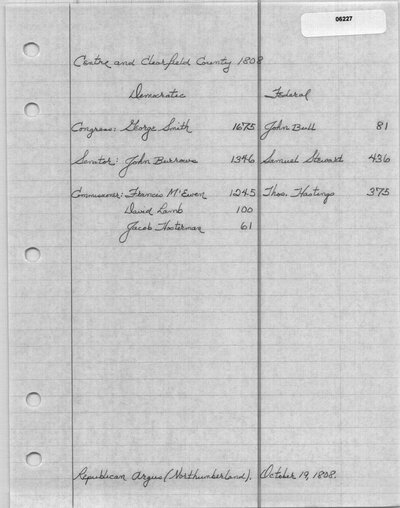 06227
Centre and Clearfield County 1808
Democratic Federal
Congress: George Smith 1675 John Bull 81
Senator: John Burrows 1346 Samuel Stewart 436
Commissioner: Francis McEwen 1245 Thos. Hastings 375
David Lamb 100
Jacob Hosterman 61
Republican Argus (Northumberland). October 19, 1808.